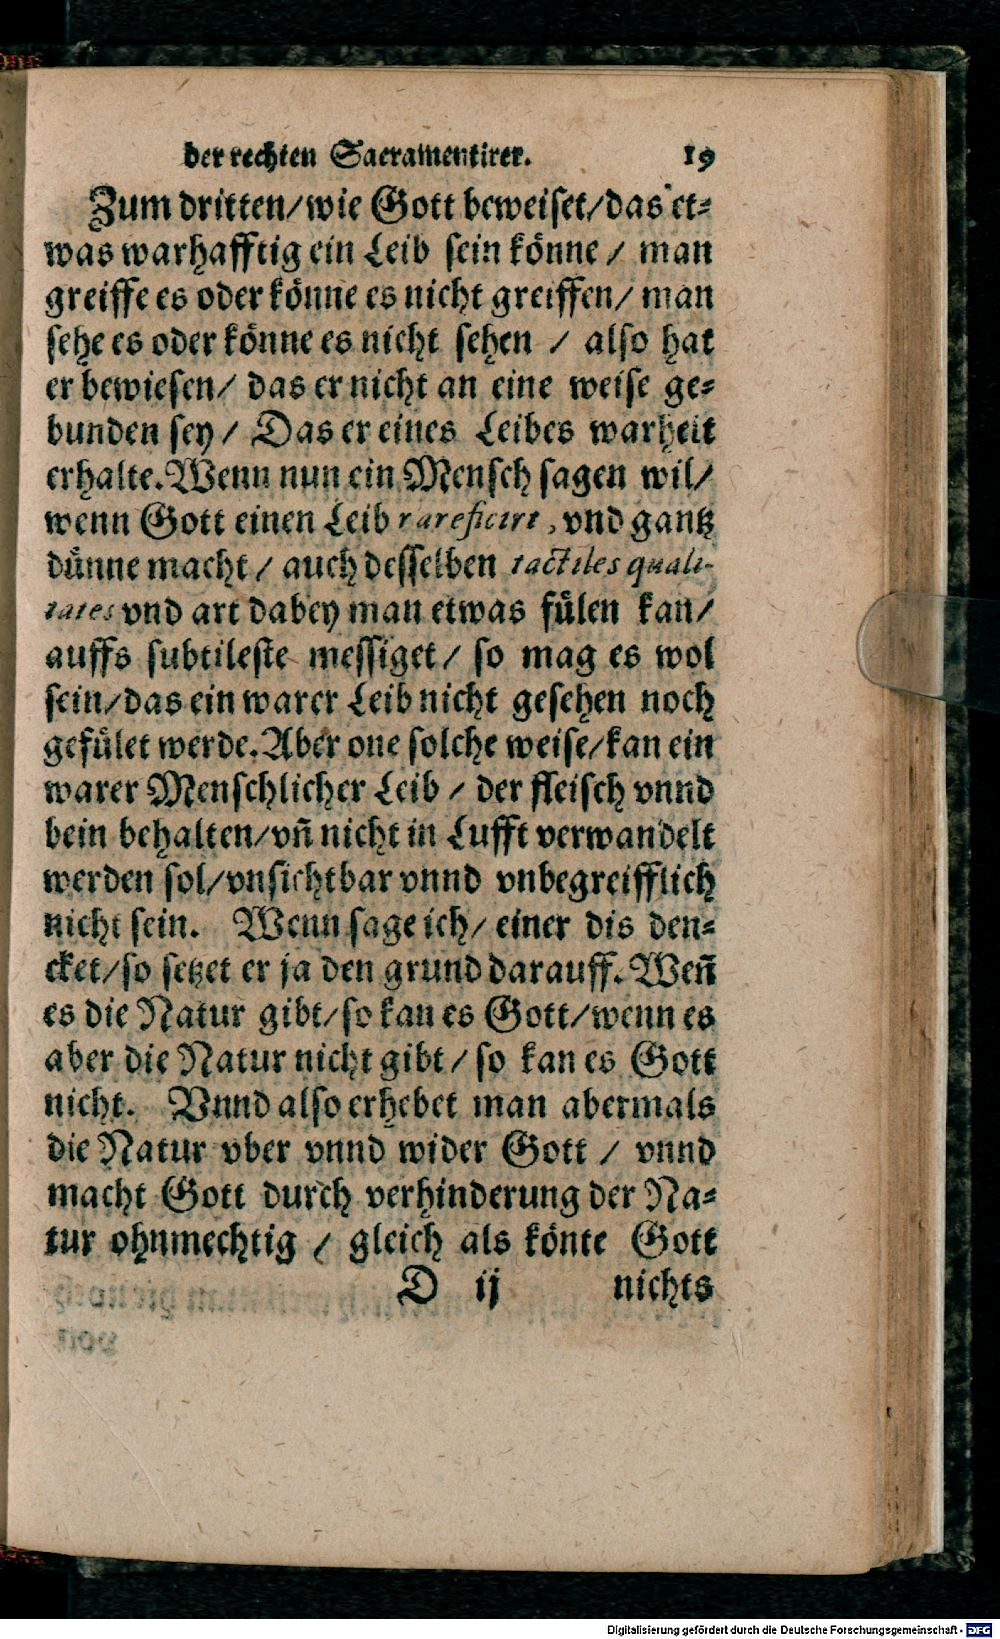 der rechten Sacramentirer. 19
Zum dritten/wie Gott beweiset/das et⸗
was warhafftig ein Leib sein könne / man
greiffe es oder könne es nicht greiffen/ man
sehe es oder könne es nicht sehen / also hat
er bewiesen/ das er nicht an eine weise ge⸗
bunden sey/ Das er eines Leibes warheit
erhalte. Wenn nun ein Mensch sagen wil/
wenn Gott einen Leib rareficirt, vnd gantz
dünne macht/ auch desselben tactiles quali-
tates vnd art dabey man etwas fülen kan/
auffs subtileste messiget/ so mag es wol
sein/das ein warer Leib nicht gesehen noch
gefület werde. Aber one solche weise/kan ein
warer Menschlicher Leib / der fleisch vnnd
bein behalten/vñ nicht in Lufft verwandelt
werden sol/vnsichtbar vnnd vnbegreifflich
nicht sein. Wenn sage ich/ einer dis den⸗
cket/so setzet er ja den grund darauff. Weñ
es die Natur gibt/so kan es Gott/wenn es
aber die Natur nicht gibt/ so kan es Gott
nicht. Vnnd also erhebet man abermals
die Natur vber vnnd wider Gott / vnnd
macht Gott durch verhinderung der Na⸗
tur ohnmechtig / gleich als könte Gott
D ij nichts
Digitalisierung gefördert durch die Deutsche Forschungsgemeinschaft - DFG